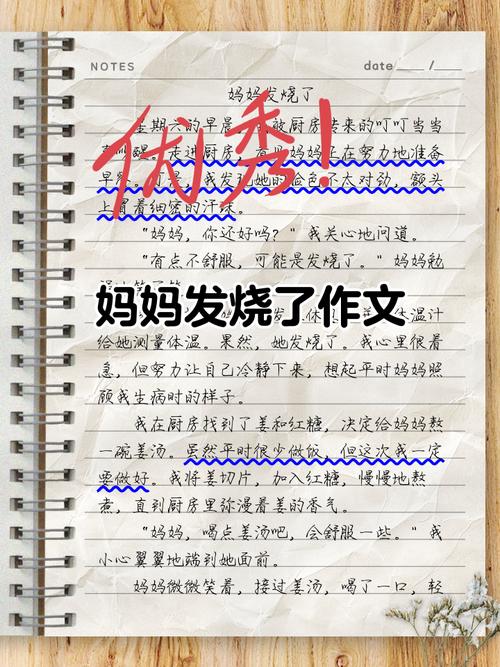 NOTES
date /
妈妈发烧了
优秀!
星期六的早晨 被厨房传来的叮叮当当
走进厨房 妈妈正在努力地准备
早餐 我发现她的脸色不太对劲,额头
上冒着细密的汗珠。
"妈妈,你还好吗?"我关心地问道。
"有点不舒服,可能是发烧了。"妈妈勉
妈妈发烧了作文
体温计
给她测量体温。果然,她发烧了。我心里很着
急,但努力让自己冷静下来,想起平时妈妈照
顾我生病时的样子。
我在厨房找到了姜和红糖,决定给妈妈熬
一碗姜汤。虽然平时很少做饭,但这次我一定
要做好。我将姜切片,加入红糖,慢慢地熬
煮,直到厨房里弥漫着姜的香气。
"妈妈,喝点姜汤吧,会舒服一些。"我
小心翼翼地端到她面前。
妈妈微微笑着,接过姜汤,喝了一口,轻